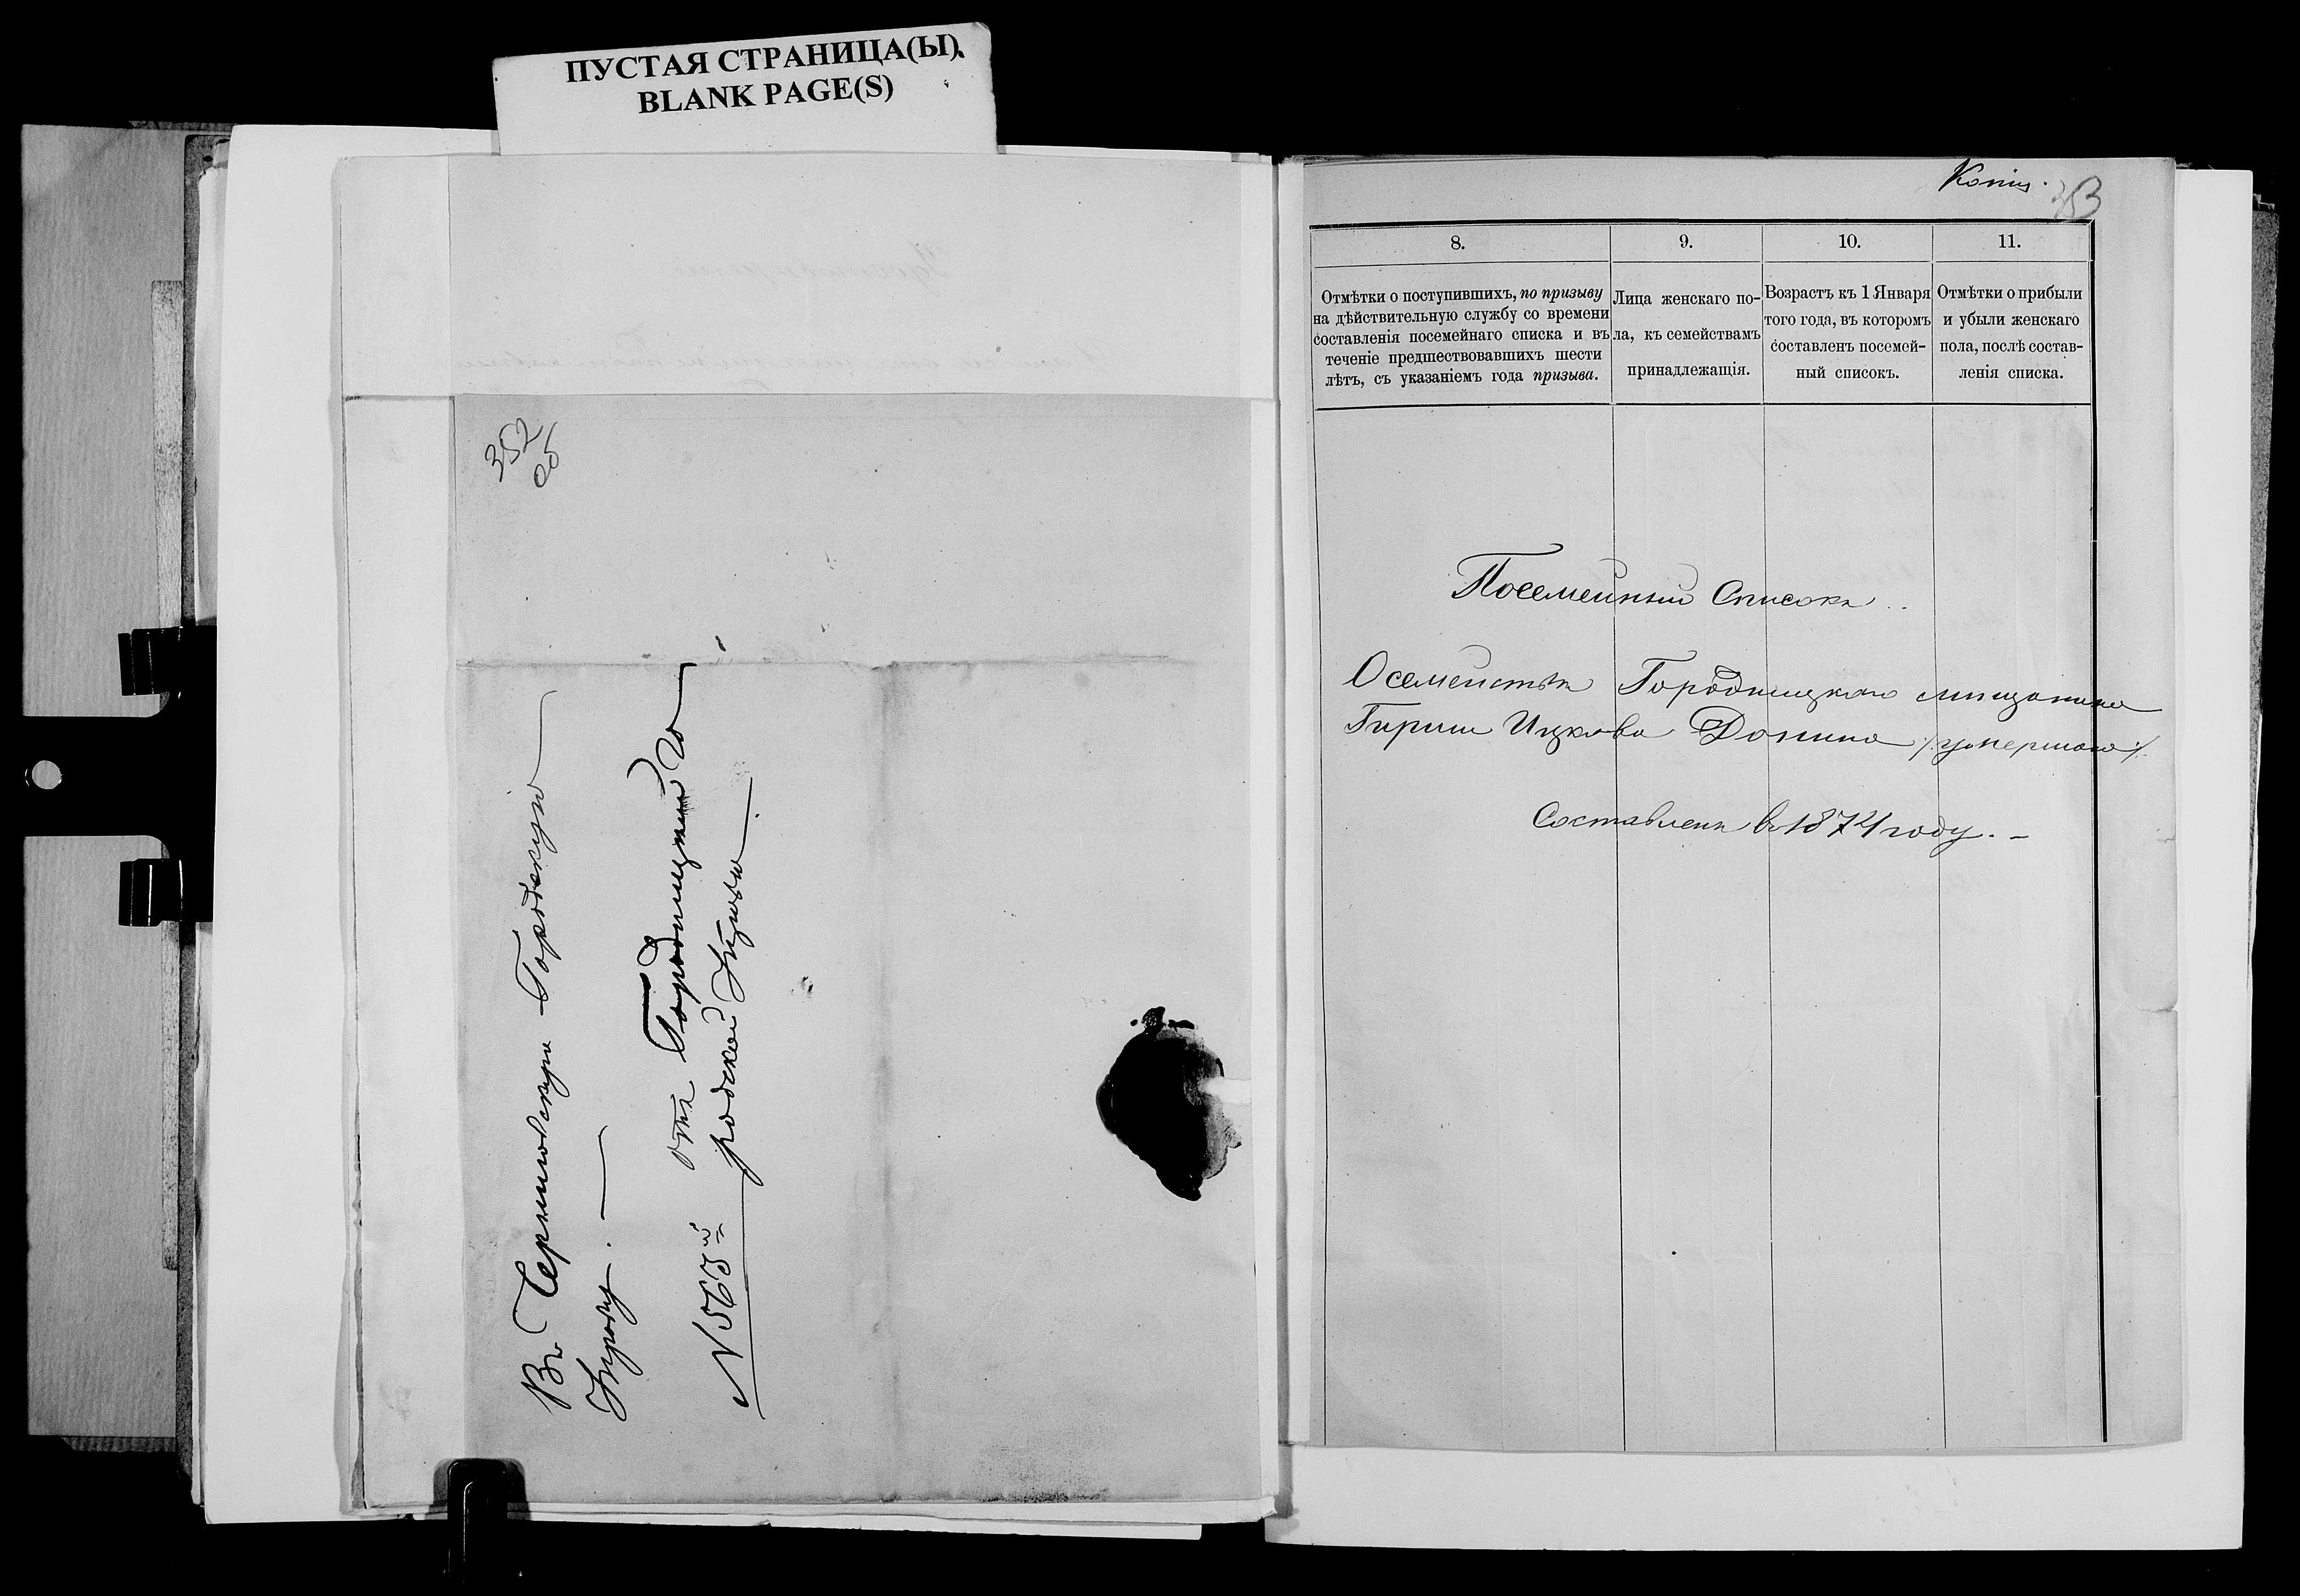 ПУСТАЯ СТРАНИЦА(Ы)
BLANK PAGE(S)
352
об
Въ Черниговскую Городскую
Управу. —
отъ Городницкой Го
родской Управы
N 563й
Копiя.
353
8.
9.
10.
11.
Отмѣтки о поступившихъ, по призыву
на дѣйствительную службу со времени
составленія посемейнаго списка и въ
теченіе предшествовавшихъ шести
лѣтъ, съ указаніемъ года призыва.
Лица женскаго по-
ла, къ семействамъ
принадлежащія.
Возрастъ къ 1 Января
того года, въ которомъ
составленъ посемей-
ный списокъ.
Отмѣтки о прибыли
и убыли женскаго
пола, послѣ состав-
ленія списка.
Посемейный Списокъ
О семействѣ Городницкаго мѣщанина
Гирши Ицкова Донина /:умершаго:/
Составленъ въ 1874 году. —